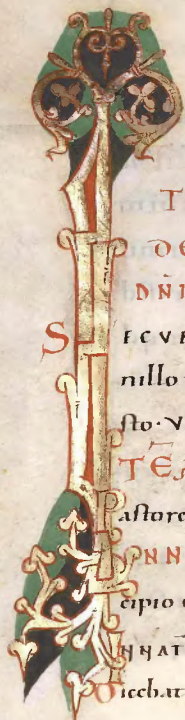 T
DE
DÑI
SECVN
nillo
sto · V
TES
Pastore
INN
cipio
NNAT
Dicebat